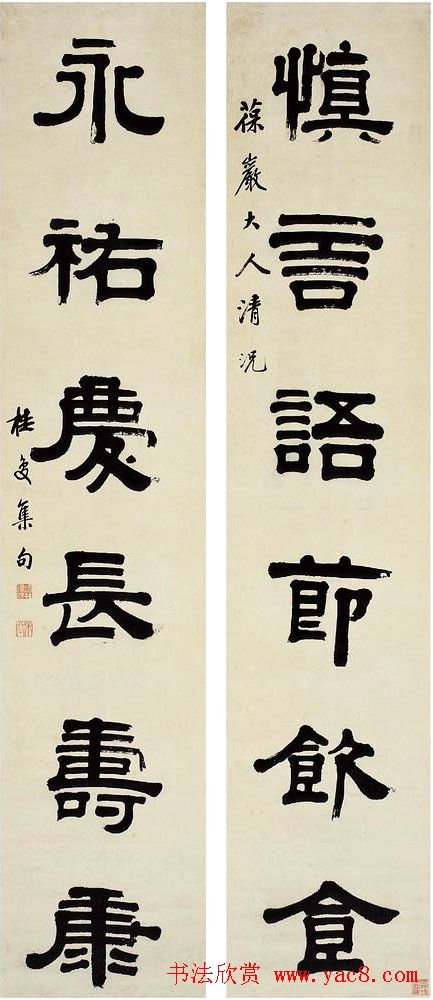 慎言語節飲食
葆巖大人清況
永祐慶長壽康
桂馥集句
书法欣赏 www.yac8.com